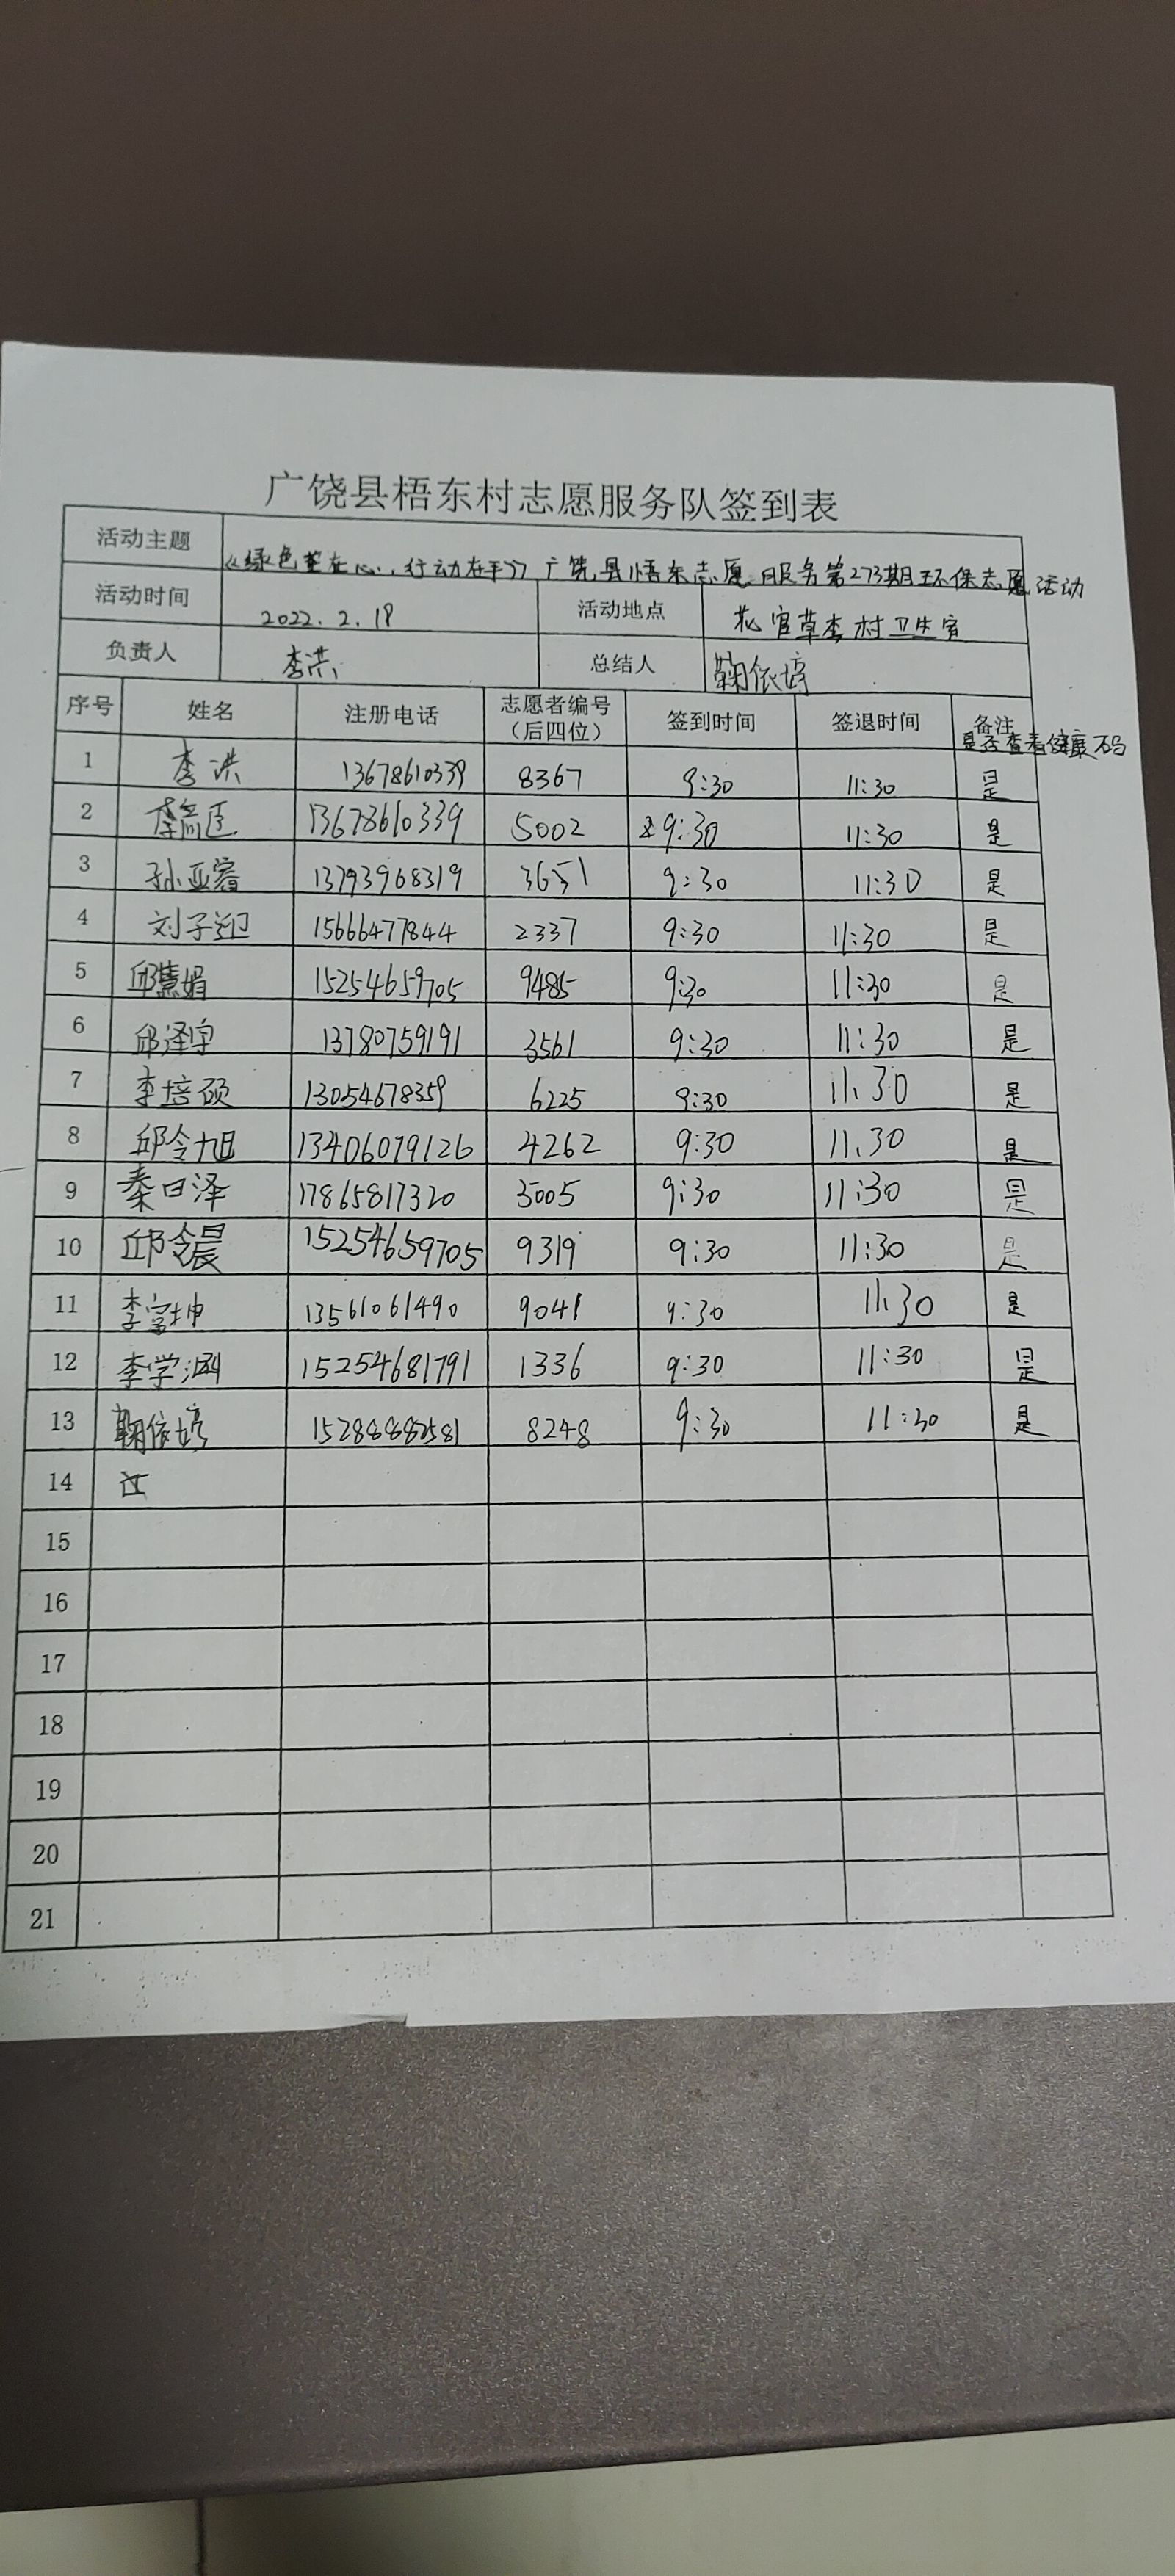 广饶县梧东村志愿服务队签到表
活动主题 《绿色革在心,行动在手》广饶县悟东志愿服务第273期环保志愿活动
活动时间 2022.2.19 活动地点 花官草李村卫生室
负责人 李洪 总结人 鞠依婷
序号 姓名 注册电话 志愿者编号(后四位) 签到时间 签退时间 备注 是否查看健康码
1 李洪 13678610339 8367 9:30 11:30 是
2 13678610339 5002 9:30 11:30 是
3 孙亚睿 13793968319 3651 9:30 11:30 是
4 刘子迎 15666477844 2337 9:30 11:30 是
5 邱慧娟 15254659705 9485 9:30 11:30 是
6 邱泽宇 13780759191 3561 9:30 11:30 是
7 李培硕 13054678359 6225 9:30 11:30 是
8 邱令旭 13406079126 4262 9:30 11:30 是
9 秦日泽 17865817320 3005 9:30 11:30 是
10 邱令晨 15254659705 9319 9:30 11:30 是
11 李富坤 13561061490 9041 9:30 11:30 是
12 李学涵 15254681791 1336 9:30 11:30 是
13 鞠依婷 15288882581 8248 9:30 11:30 是
14
15
16
17
18
19
20
21